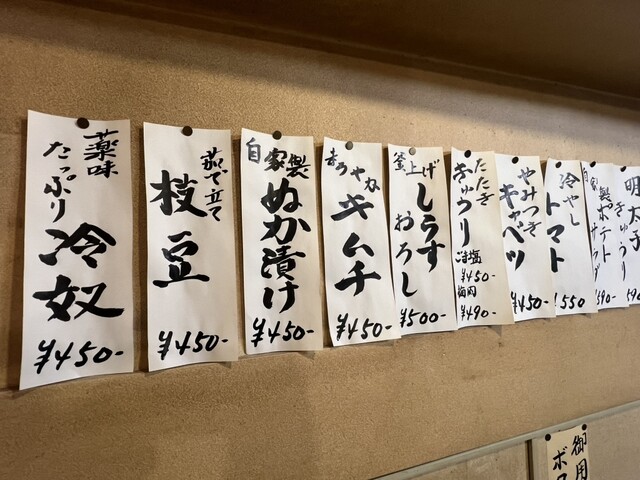 薬味
たっぷり
冷奴
¥450-
茹で立て
枝豆
¥450-
自家製
ぬか漬け
¥450-
まろやか
キムチ
¥450-
釜上げ
しらす
おろし
¥500-
たたき
きゅうり
ごま塩
¥450-
梅肉
¥490-
やみつき
キャベツ
¥450-
冷やし
トマト
¥550
自家製
ポテト
サラダ
590-
明太子
きゅうり
590-
御用
ボ